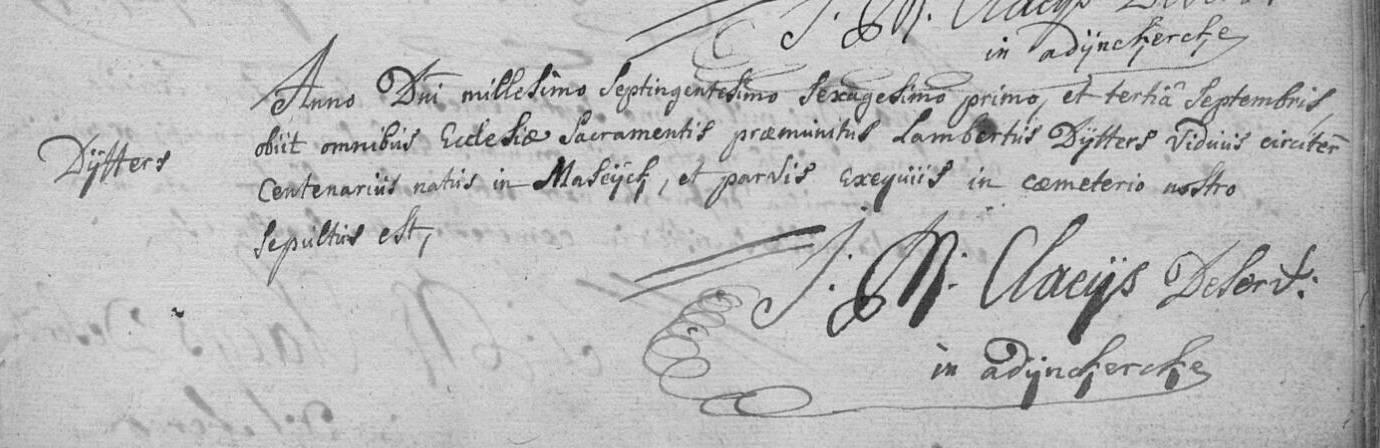 J. M. Claeijs Deser
in adijnckercke
Anno Dni millesimo septingentesimo sexagesimo primo, et tertiâ septembris,
Dijtters
obiit omnibus Ecclesiæ sacramentis præmunitus Lambertus Dijtters viduus circiter
centenarius natus in Maseijck, et parvis exequiis in cœmeterio nostro
sepultus est,
J. M. Claeijs Deservt:
in adijnckercke